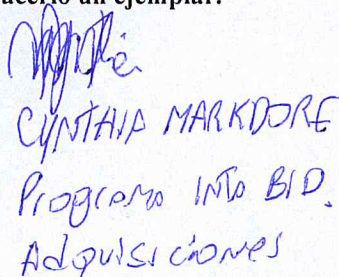 acerlo un ejemplar.
CYNTHIA MARKDORF
Programa INTA BID.
Adquisiciones